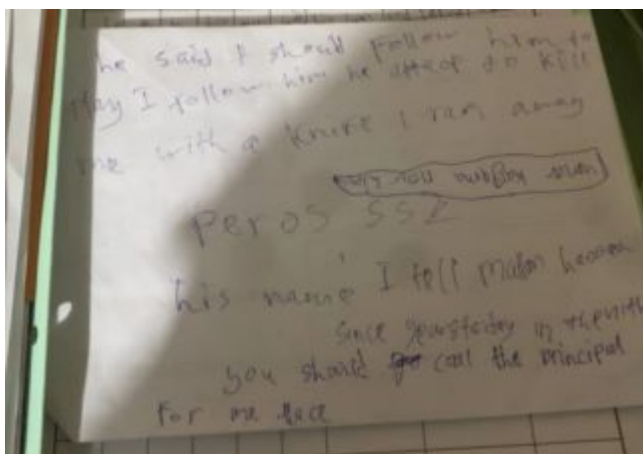 he said I should follow him to
play I follow him he attept to kill
me with a knife I ran away
Peros SS2
his name I tell matron
since yearstaday in the
you should call the principal
for me